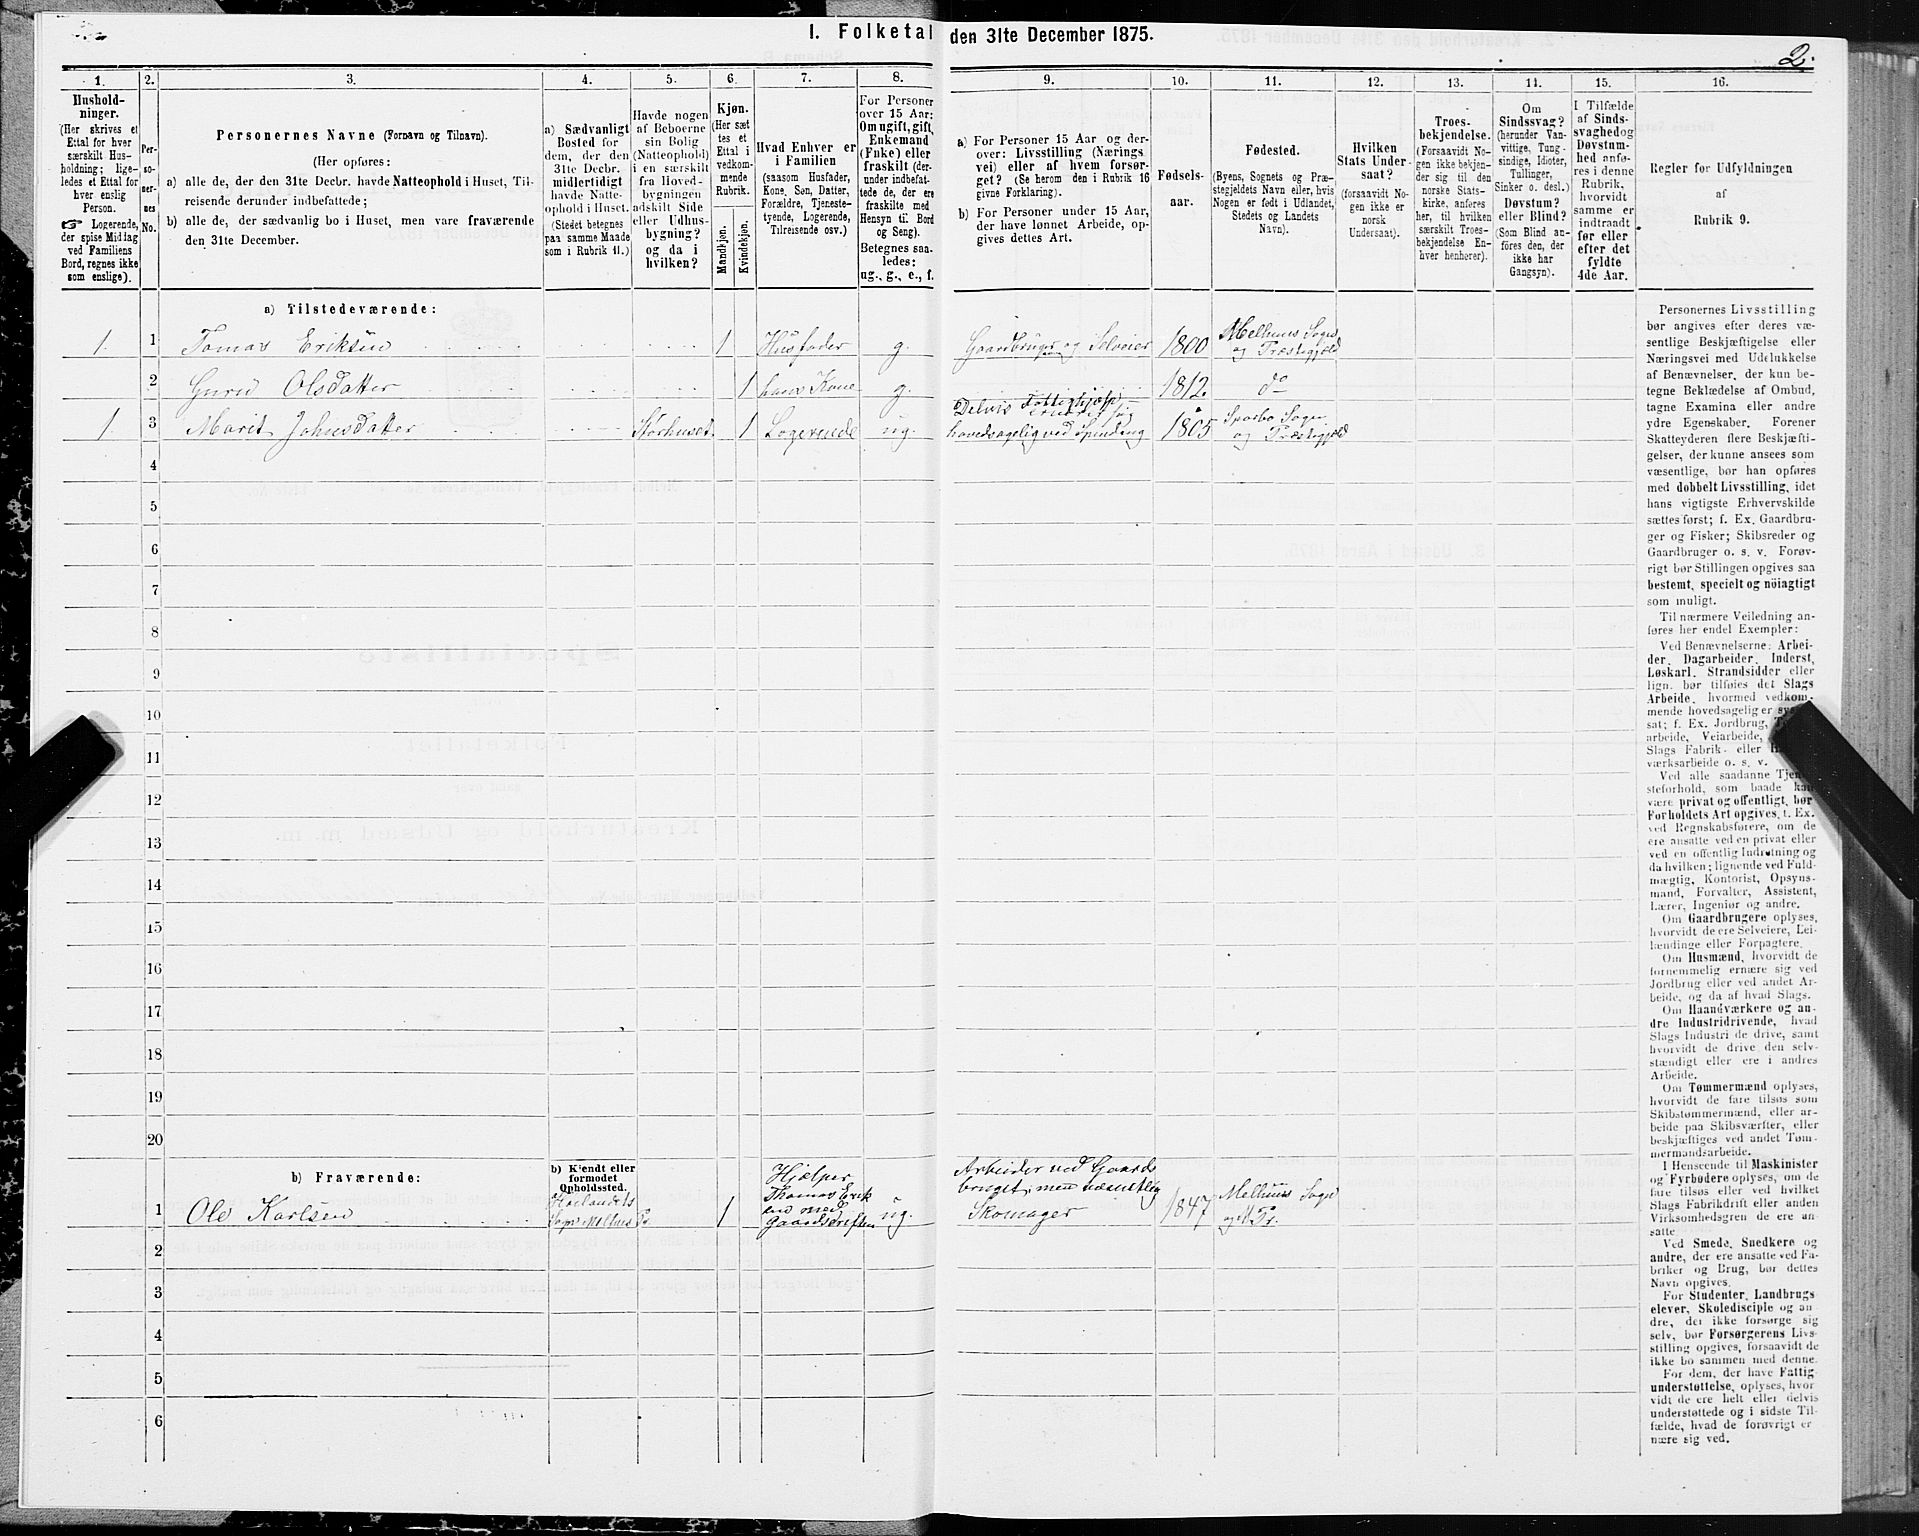 I. Folketal den 31te December 1875.
2.
1.
2.
3.
4.
5.
6.
7.
8.
9.
10.
11.
12.
13.
14.
15.
16.
Hushold-
ninger.
(Her skrives et
Ettal for hver
særskilt Hus-
holdning; lige-
ledes et Ettal for
hver enslig
Person.
☞ Logerende,
der spise Middag
ved Familiens
Bord, regnes ikke
som enslige).
Per-
so-
ner-
nes
No.
Personernes Navne (Fornavn og Tilnavn).
(Her opføres:
a) alle de, der den 31te Decbr. havde Natteophold i Huset, Til-
reisende derunder indbefattede;
b) alle de, der sædvanlig bo i Huset, men vare fraværende
den 31te December.
a) Sædvanligt
Bosted for
dem, der den
31te Decbr.
midlertidigt
havde Natte-
ophold i Huset.
(Stedet betegnes
paa samme Maade
som i Rubrik 11.)
Havde nogen
af Beboerne
sin Bolig
(Natteophold)
i en særskilt
fra Hoved-
bygningen
adskilt Side
eller Udhus-
bygning?
og da i
hvilken?
Kjøn.
(Her sæt
tes et
Ettal i
vedkom-
mende
Rubrik.
Mandkjøn.
Kvindekjøn.
Hvad Enhver er
i Familien
(saasom Husfader,
Kone, Søn, Datter,
Forældre, Tjeneste-
tyende, Logerende,
Tilreisende osv.)
For Personer
over 15 Aar:
Om ugift, gift,
Enkemand
(Enke) eller
fraskilt (der-
under indbefat-
tede de, der ere
fraskilte med
Hensyn til Bord
og Seng).
Betegnes saa-
ledes:
ug., g., e., f.
a) For Personer 15 Aar og der-
over: Livsstilling (Nærings
vei) eller af hvem forsør-
get? (Se herom den i Rubrik 16
givne Forklaring).
b) For Personer under 15 Aar,
der have lønnet Arbeide, op-
gives dettes Art.
Fødsels-
aar.
Fødested.
(Byens, Sognets og Præ-
stegjeldets Navn eller, hvis
Nogen er født i Udlandet,
Stedets og Landets
Navn).
Hvilken
Stats Under-
saat?
(forsaavidt No-
gen ikke er
norsk
Undersaat).
Troes-
bekjendelse.
(Forsaavidt No-
gen ikke bekjen-
der sig til den
norske Stats-
kirke, anføres
her, til hvilken
særskilt Troes-
bekjendelse En-
hver henhører).
Om
Sindssvag?
(herunder Van-
vittige, Tung-
sindige, Idioter,
Tullinger,
Sinker o. desl.)
Døvstum?
eller Blind?
(Som Blind an-
føres den, der
ikke har
Gangsyn).
I Tilfælde
af Sinds-
svaghed og
Døvstum-
hed anfø-
res i denne
Rubrik,
hvorvidt
samme er
indtraadt
før eller
efter det
fyldte
4de Aar.
Regler for Udfyldningen
af
Rubrik 9.
a) Tilstedeværende:
1. 1 Tomas Eriksen 1 Husfader g. Gaardbruger og Selveier 1800 Melhuus Sogn
og Præstegjeld
2 Guru Olsdatter 1 hans Kone g. 1812. do
Delvis Fattighjælp
1 3 Marit Johnsdatter Storhuset 1 Logerende ug. hovedsagelig ved Spinding 1805 Sogn
og Præstegjeld
4
5
6
7
8
9
10
11
12
13
14
15
16
17
18
19
20
b) Fraværende:
b) Kjendt eller
formodet
Opholdssted.
1 Ole Karlsen
Sogn Melhus Pr
1
Hjælper
Thomas Erik
en med
Gaardsdriften
ug.
Arbeider ved Gaards
bruget, men nemtlig
Skomager
1847
Melhuus Sogn
og Pr.
2
3
4
5
6
Personernes Livsstilling
bør angives efter deres væ-
sentlige Beskjæftigelse eller
Næringsvei med Udelukkelse
af Benævnelser, der kun be-
tegne Beklædelse af Ombud,
tagne Examina eller andre
ydre Egenskaber. Forener
Skatteyderen flere Beskjæfti-
gelser, der kunne ansees som
væsentlige, bør han opføres
med dobbelt Livsstilling, idet
hans vigtigste Erhvervskilde
sættes først; f. Ex. Gaardbru-
ger og Fisker; Skibsreder og
Gaardbruger o. s. v. Forøv-
rigt bør Stillingen opgives saa
bestemt, specielt og nöiagtigt
som muligt.
Til nærmere Veiledning an-
føres her endel Exempler:
Ved Benævnelserne: Arbei-
der, Dagarbeider, Inderst,
Løskarl, Strandsidder eller
lign. bør tilføies det Slags
Arbeide, hvormed vedkom-
mende hovedsagelig er
sat; f. Ex. Jordbrug,
arbeide, Veiarbeide,
Slags Fabrik- eller
værksarbeide o. s. v.
Ved alle saadanne
steforhold, som baade
være privat og offentligt, bør
Forholdets Art opgives, t. Ex.
ved Regnskabsførere, om de
ere ansatte ved en privat eller
ved en offentlig Indretning og
da hvilken; lignende ved Fuld-
mægtig, Kontorist, Opsyns-
mand, Forvalter, Assistent,
Lærer, Ingeniør og andre.
Om Gaardbrugere oplyses,
hvorvidt de ere Selveiere, Lei-
lændinge eller Forpagtere.
Om Husmænd, hvorvidt de
fornemmelig ernære sig ved
Jordbrug eller ved andet Ar-
beide, og da af hvad Slags.
Om Haandværkere og an-
dre Industridrivende, hvad
Slags Industri de drive, samt
hvorvidt de drive den selv-
stændigt eller ere i andres
Arbeide.
Om Tømmermænd oplyses,
hvorvidt de fare tilsøs som
Skibstømmermænd, eller ar-
beide paa Skibsværfter, eller
beskjæftiges ved andet Tøm-
mermandsarbeide.
I Henseende til Maskinister
og Fyrbødere oplyses, om de
fare tilsøs eller ved hvilket
Slags Fabrikdrift eller anden
Virksomhedsgren de ere an-
satte.
Ved Smede, Snedkere og
andre, der ere ansatte ved Fa-
briker og Brug, bør dettes
Navn opgives.
For Studenter, Landbrugs
elever, Skoledisciple og an-
dre, der ikke forsørge sig
selv, bør Forsørgerens Livs-
stilling opgives, forsaavidt de
ikke bo sammen med denne.
For dem, der have Fattig
understøttelse, oplyses, hvor
vidt de ere helt eller delvis
understøttede og i sidste Til-
fælde, hvad de forøvrigt er
nære sig ved.